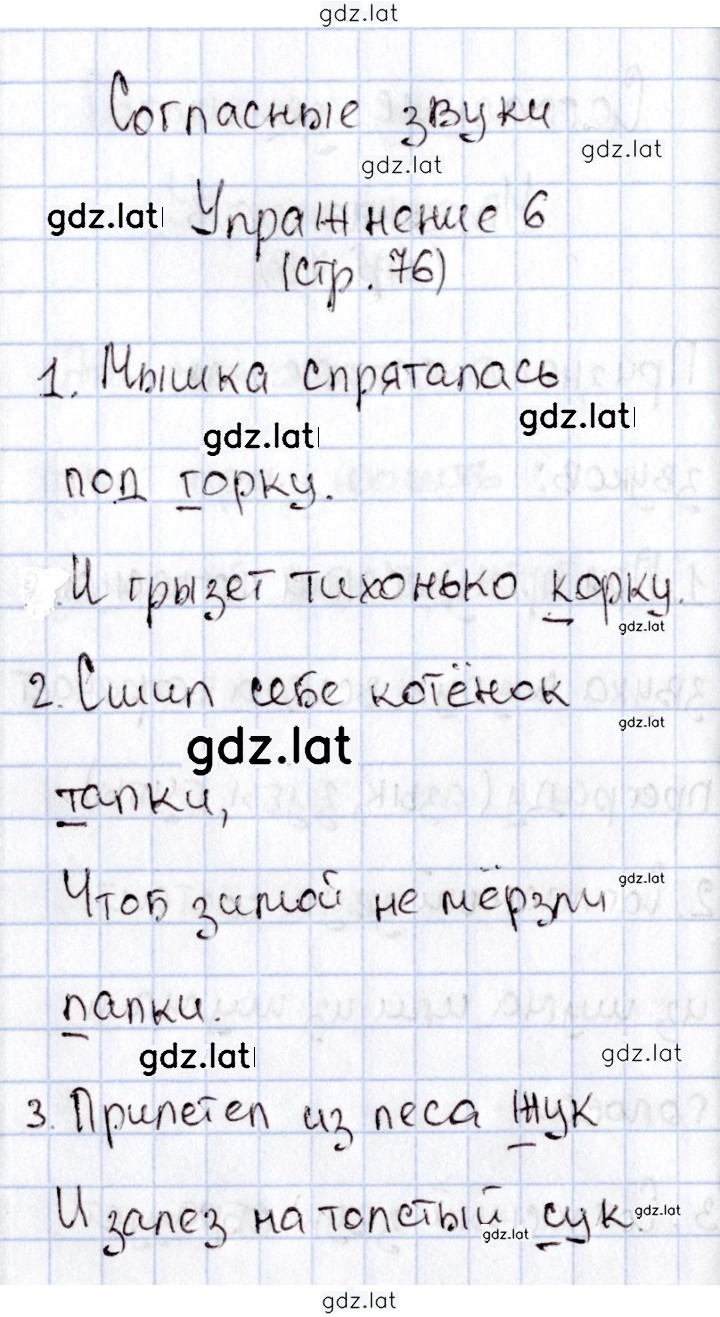 gdz.lat
Согласные звуки
gdz.lat gdz.lat
gdz.lat Упражнение 6
(стр. 76)
1. Мышка спряталась
gdz.lat gdz.lat
под горку.
И грызет тихонько корку.
gdz.lat
2. Сшил себе котёнок
gdz.lat gdz.lat
тапки,
Чтоб зимой не мёрзли
gdz.lat
лапки.
gdz.lat gdz.lat
3. Прилетел из леса жук
И залез на толстый сук.
gdz.lat gdz.lat
gdz.lat